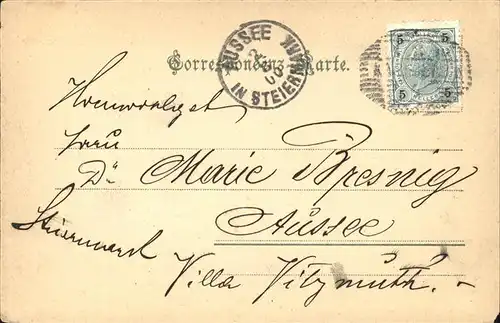 AUSSEE
IN STEIERMARK
Correspondenz-Karte.
5 5
5 5
Frau
Dr. Marie Bresnig
Aussee
Steiermark
Villa Vitzmuth.